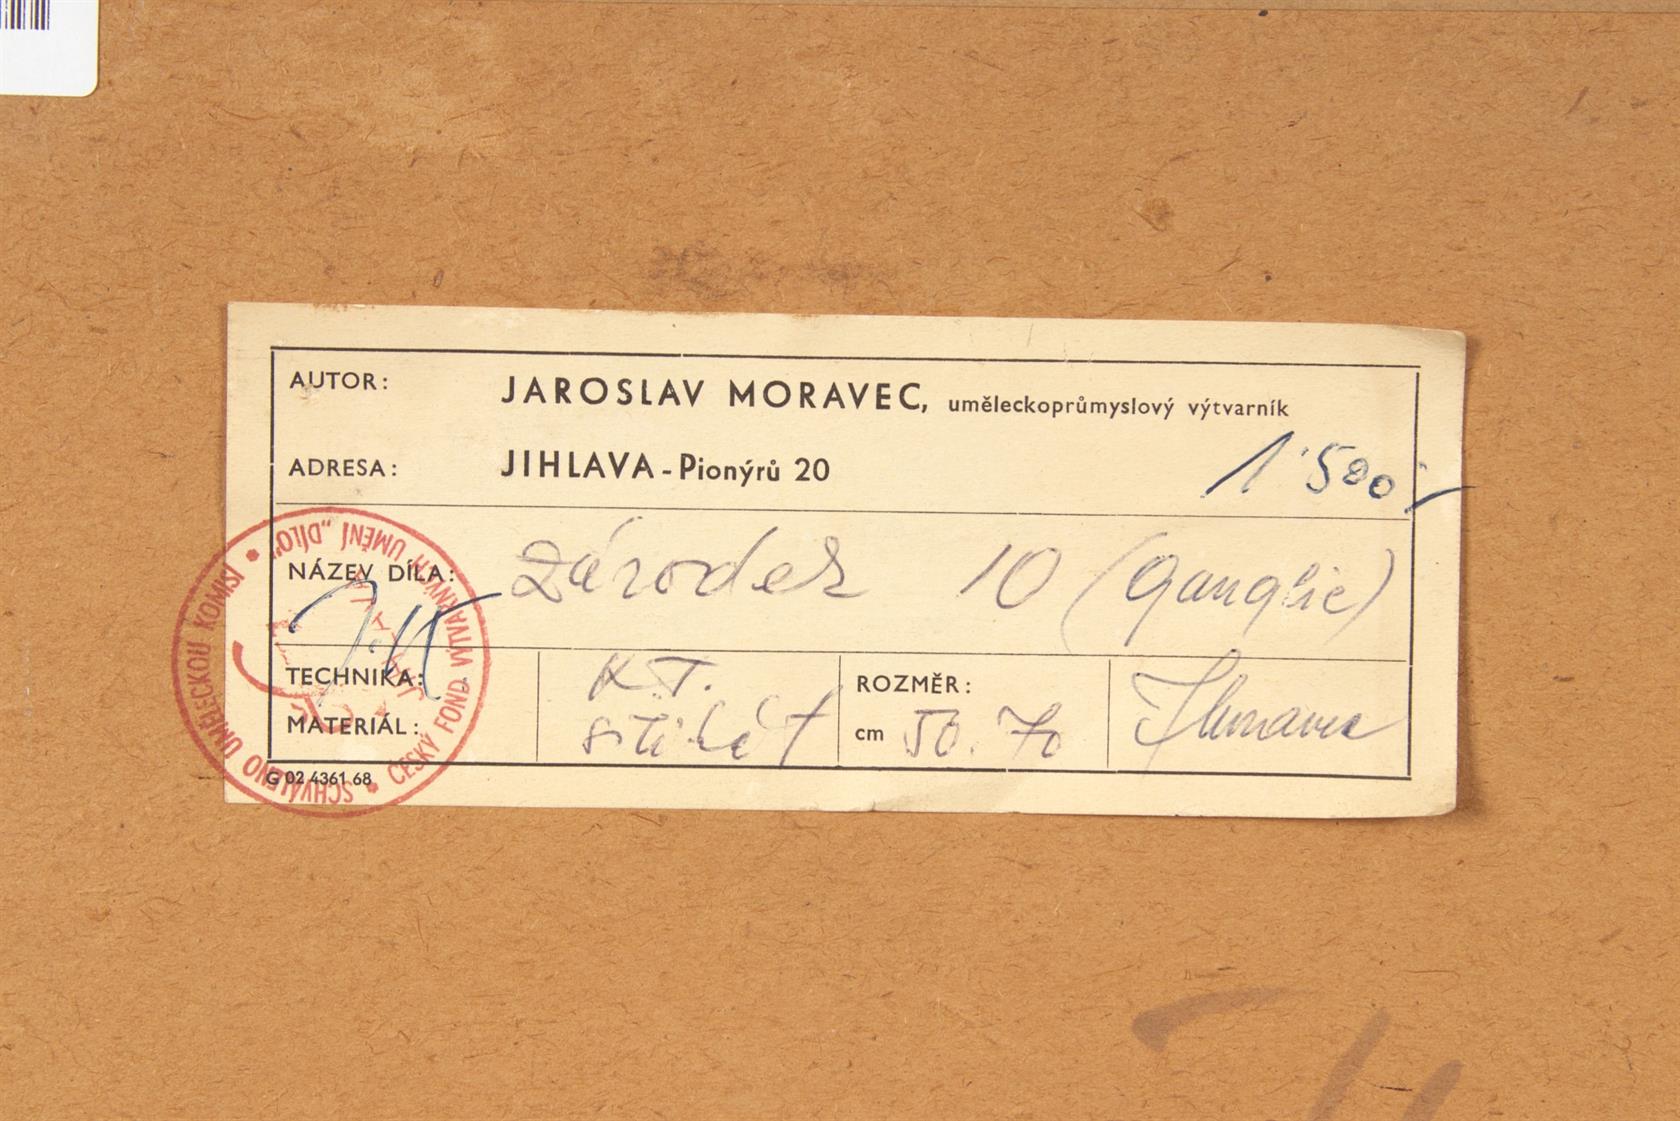 AUTOR: JAROSLAV MORAVEC, uměleckoprůmyslový výtvarník
ADRESA: JIHLAVA - Pionýrů 20
1'500,-
NÁZEV DÍLA: Zárodek 10 (Ganglie)
TECHNIKA: K.T.
MATERIÁL:
ROZMĚR:
cm 50. 70
JMoravec
G 02 4361 68
SCHVÁLENO UMĚLECKOU KOMISÍ • ČESKÝ FOND VÝTVARNÝCH UMĚNÍ „DÍLO"
JIHLAVA